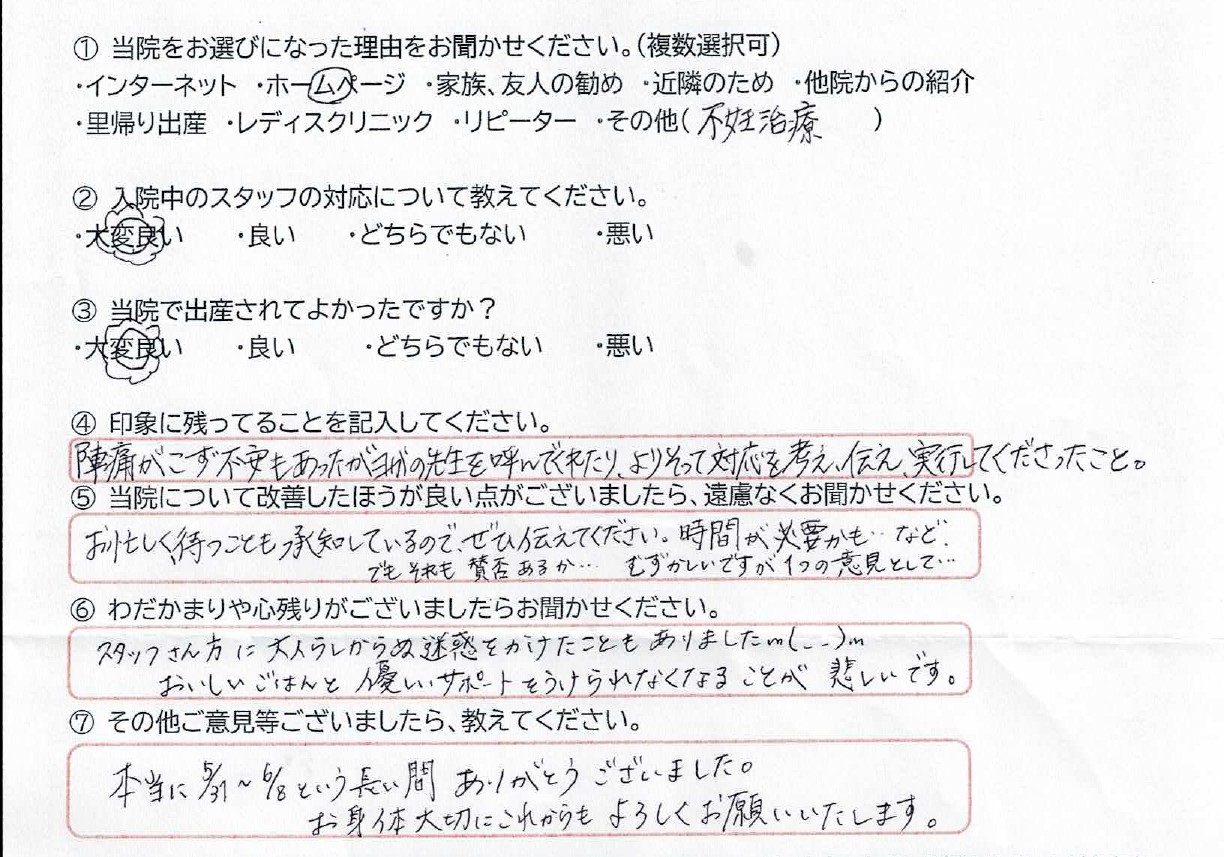 ① 当院をお選びになった理由をお聞かせください。(複数選択可)
・インターネット ・ホームページ ・家族、友人の勧め ・近隣のため ・他院からの紹介
・里帰り出産 ・レディスクリニック ・リピーター ・その他( 不妊治療 )
② 入院中のスタッフの対応について教えてください。
・大変良い ・良い ・どちらでもない ・悪い
③ 当院で出産されてよかったですか？
・大変良い ・良い ・どちらでもない ・悪い
④ 印象に残ってることを記入してください。
陣痛がこず不安もあったがヨガの先生を呼んでくれたり、よりそって対応を考え、伝え、実行してくださったこと。
⑤ 当院について改善したほうが良い点がございましたら、遠慮なくお聞かせください。
お忙しく、待つことも承知しているので、ぜひ伝えてください。時間が必要かも…など、
でもそれも賛否あるか… むずかしいですが1つの意見として…
⑥ わだかまりや心残りがございましたらお聞かせください。
スタッフさん方に大人らしからぬ迷惑をかけたこともありましたm(_ _)m
おいしいごはんと優しいサポートをうけられなくなることが悲しいです。
⑦ その他ご意見等ございましたら、教えてください。
本当に5/31～6/8という長い間ありがとうございました。
お身体大切にこれからもよろしくお願いいたします。